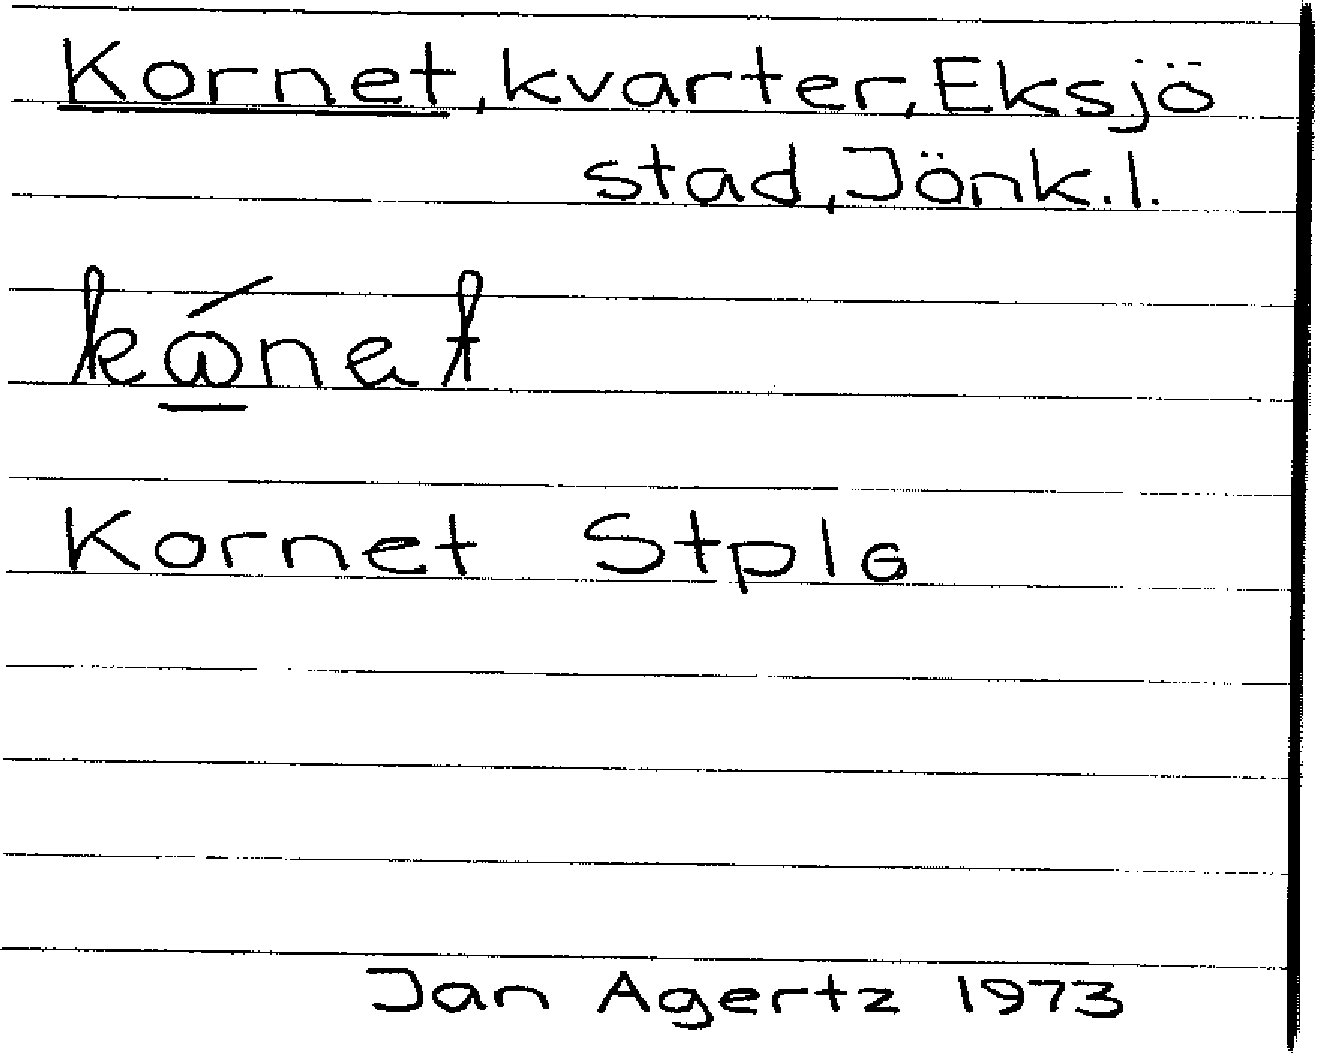 Kornet, kvarter, Eksjö
stad, Jönk.l.
Kornet Stpl6
Jan Agertz 1973